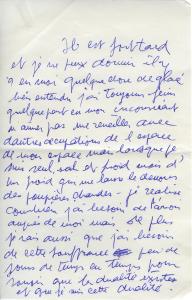 Il est fort tard
et je ne peux dormir il y
a en moi quelque chose de glacé
bien entendu j'ai toujours faim
quelque part en mon inconscient
ne pas me réveiller avec
d'autres occupations de l'espace
de mon espace mais lorsque je
suis seul sal et froid mais d'
un froid qui me laisse le dehors
des paupières chaudes - je réalise
combien j'ai besoin de l'avoir
auprès de moi mais de plus
je sais aussi que j'ai besoin
de cette souffrance
de temps en temps pour
que la dualité existe
et que je suis cette dualité.